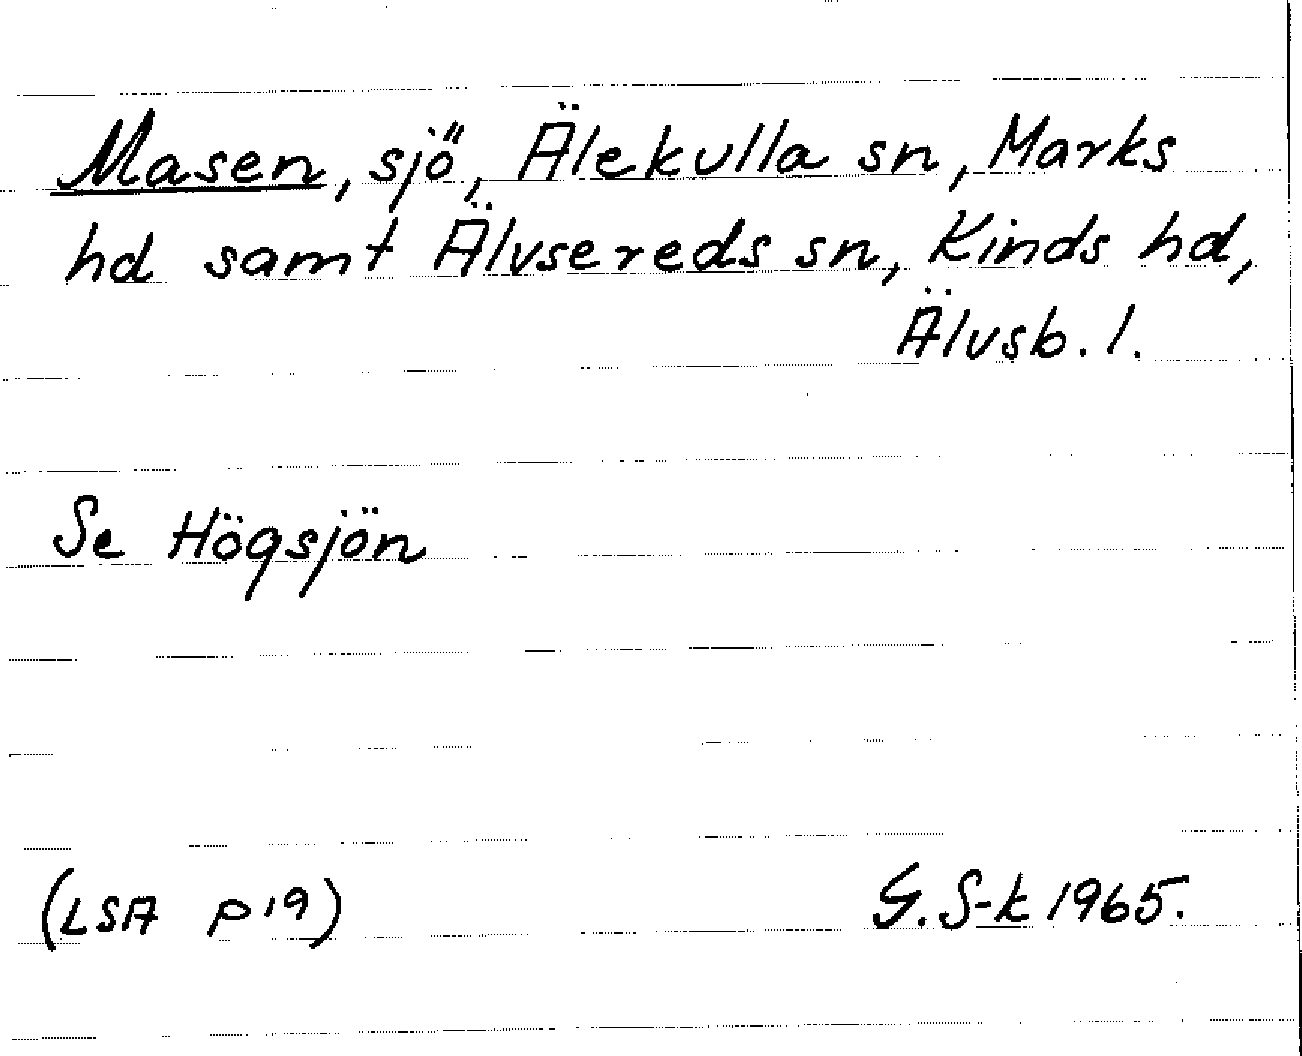 Masen, sjö, Älekulla sn, Marks
hd samt Älvsereds sn, Kinds hd,
Älvsb. l.
Se Högsjön
(LSA P19)
G. S-k 1965.